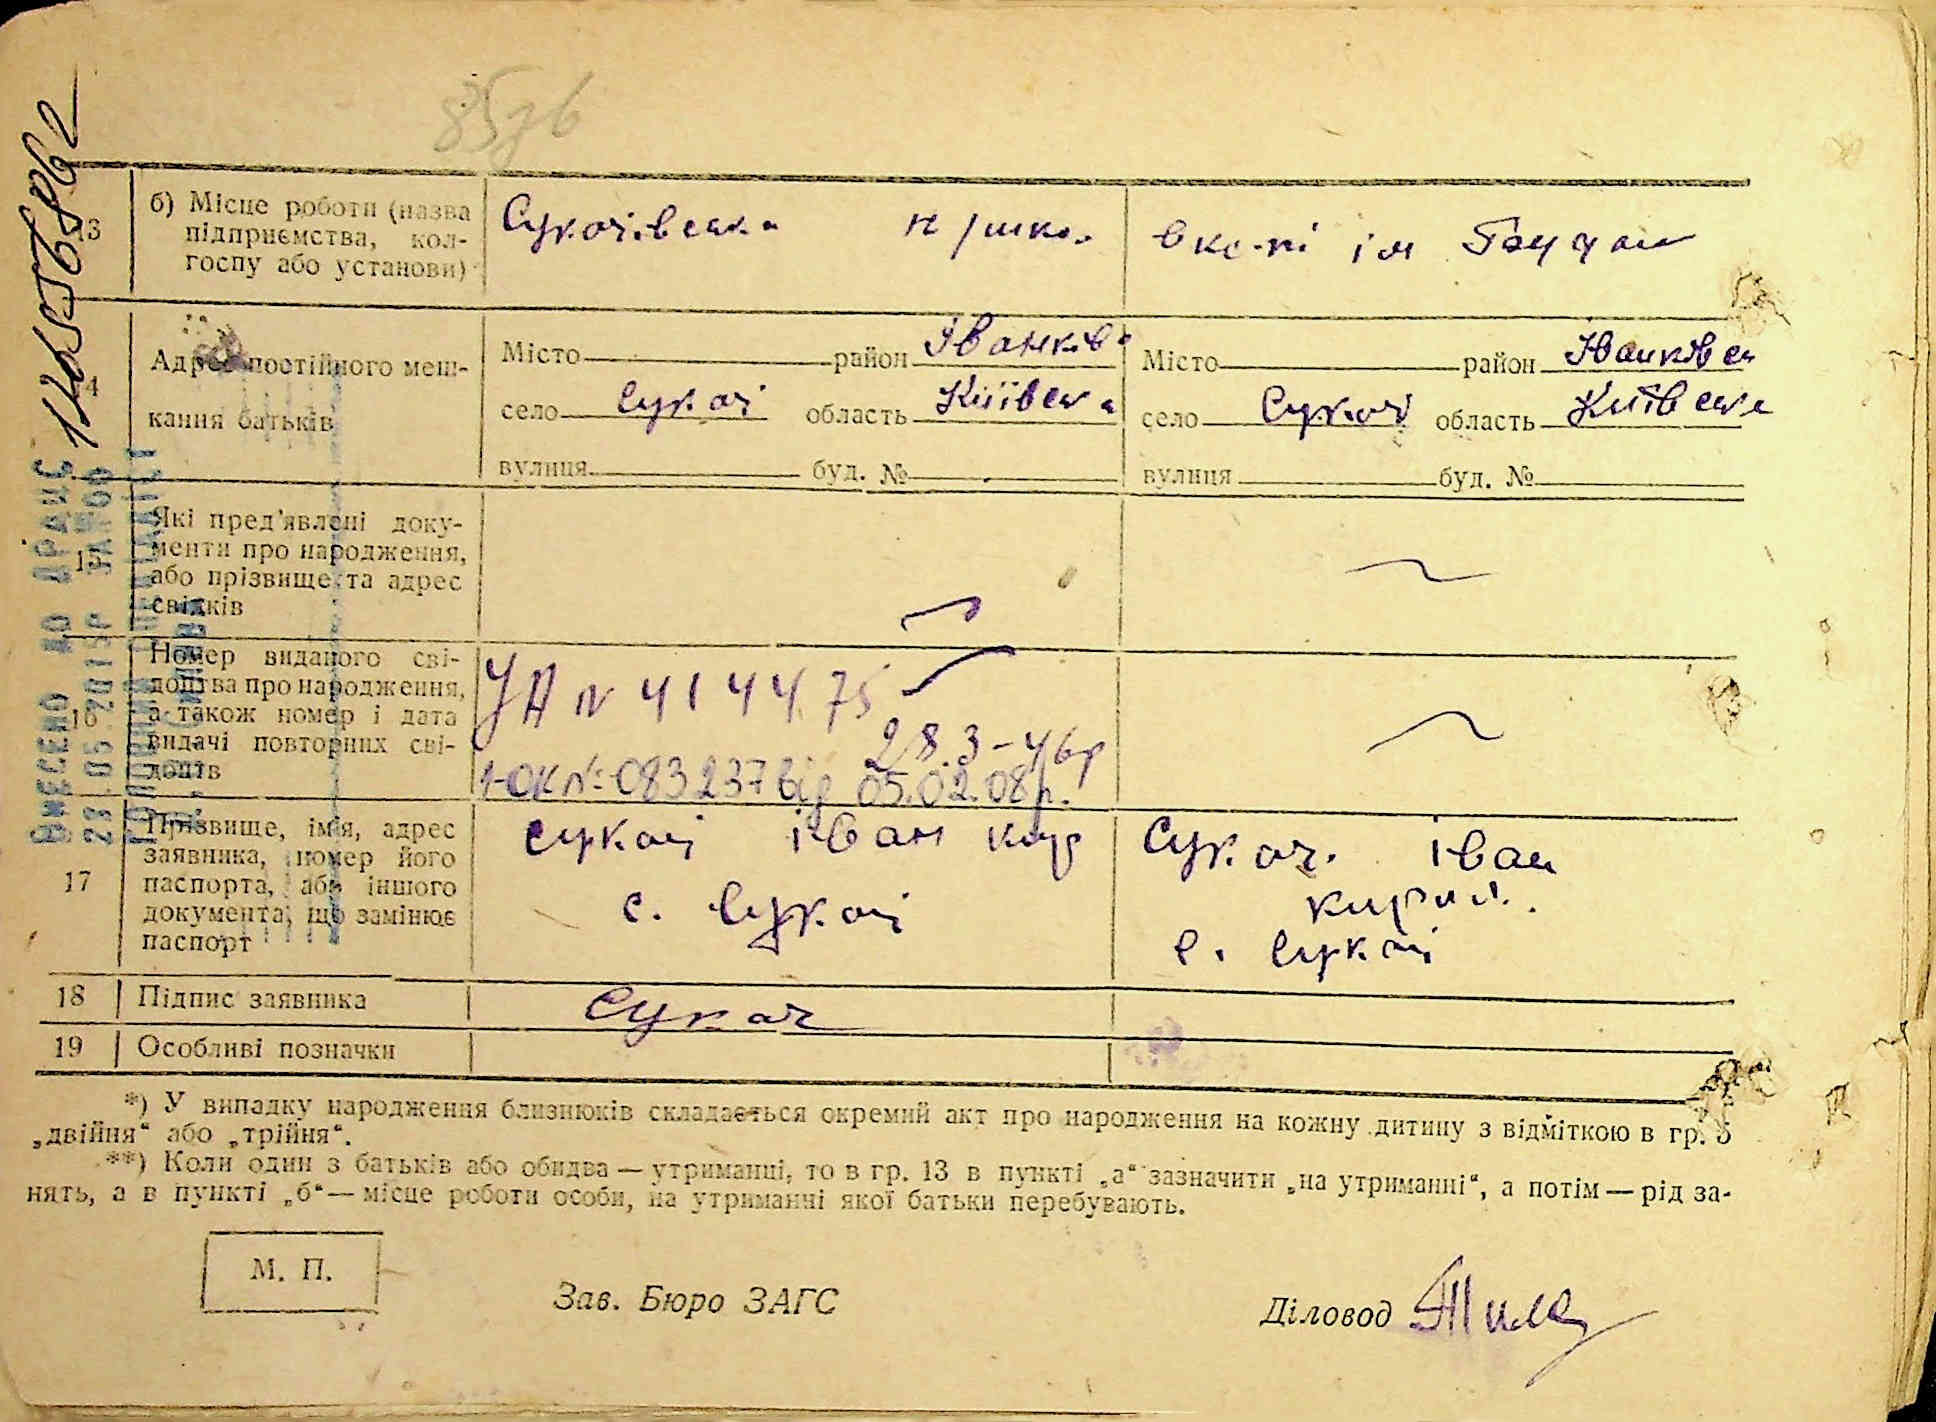 13 б) Місце роботи (назва Сукачівська п/шко.
підприємства, кол-
госпу або установи)
14 Адрес постійного меш-
кання батьків
Місто район Іванків. Місто район Іванківськ
село Сукачі область Київська село Сукачі область Київська
вулиця буд. № вулиця буд. №
15 Які пред'явлені доку-
менти про народження,
або прізвище та адрес
свідків
16 Номер виданого сві-
доцтва про народження,
а також номер і дата
видачі повторних сві-
доцтв
УА N 414475
28.3-46р
1-ОК №: 083237 від 05.02.08р.
17 Прізвище, імя, адрес
заявника, номер його
паспорта, або іншого
документа, що замінює
паспорт
Сукач Іван Кир Сукач. Іван
Кирил.
с. Сукачі с. Сукачі
18 Підпис заявника Сукач
19 Особливі позначки
*) У випадку народження близнюків складається окремий акт про народження на кожну дитину з відміткою в гр. 5
„двійня“ або „трійня“.
**) Коли один з батьків або обидва — утриманці, то в гр. 13 в пункті „а“ зазначити „на утриманні“, а потім — рід за-
нять, а в пункті „б“ — місце роботи особи, на утриманні якої батьки перебувають.
М. П.
Зав. Бюро ЗАГС Діловод
ВНЕСЕНО ДО ДРАЦС
23.05.2015Р